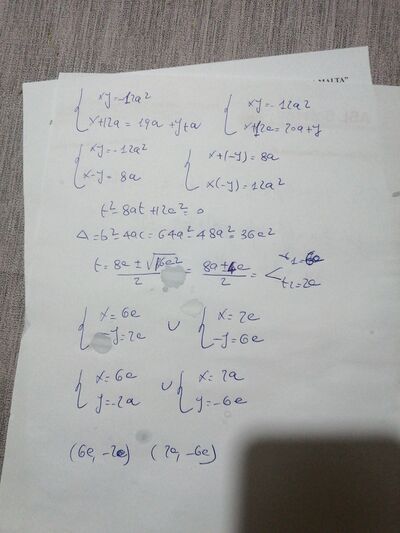 MALTA"
{ xy=-12a² { xy=-12a²
x+12a=19a+y+a x+12a=20a+y
{ xy=-12a² { x+(-y)=8a
x-y=8a x(-y)=12a²
t²-8at+12a²=0
Δ=b²-4ac=64a²-48a²=36a²
t=8a±√16a²/2=8a±4a/2=< t1=6a
t2=2a
{ x=6a ∪ { x=2a
-y=2a -y=6a
{ x=6a ∪ { x=2a
y=-2a y=-6a
(6a,-2a) (2a,-6a)